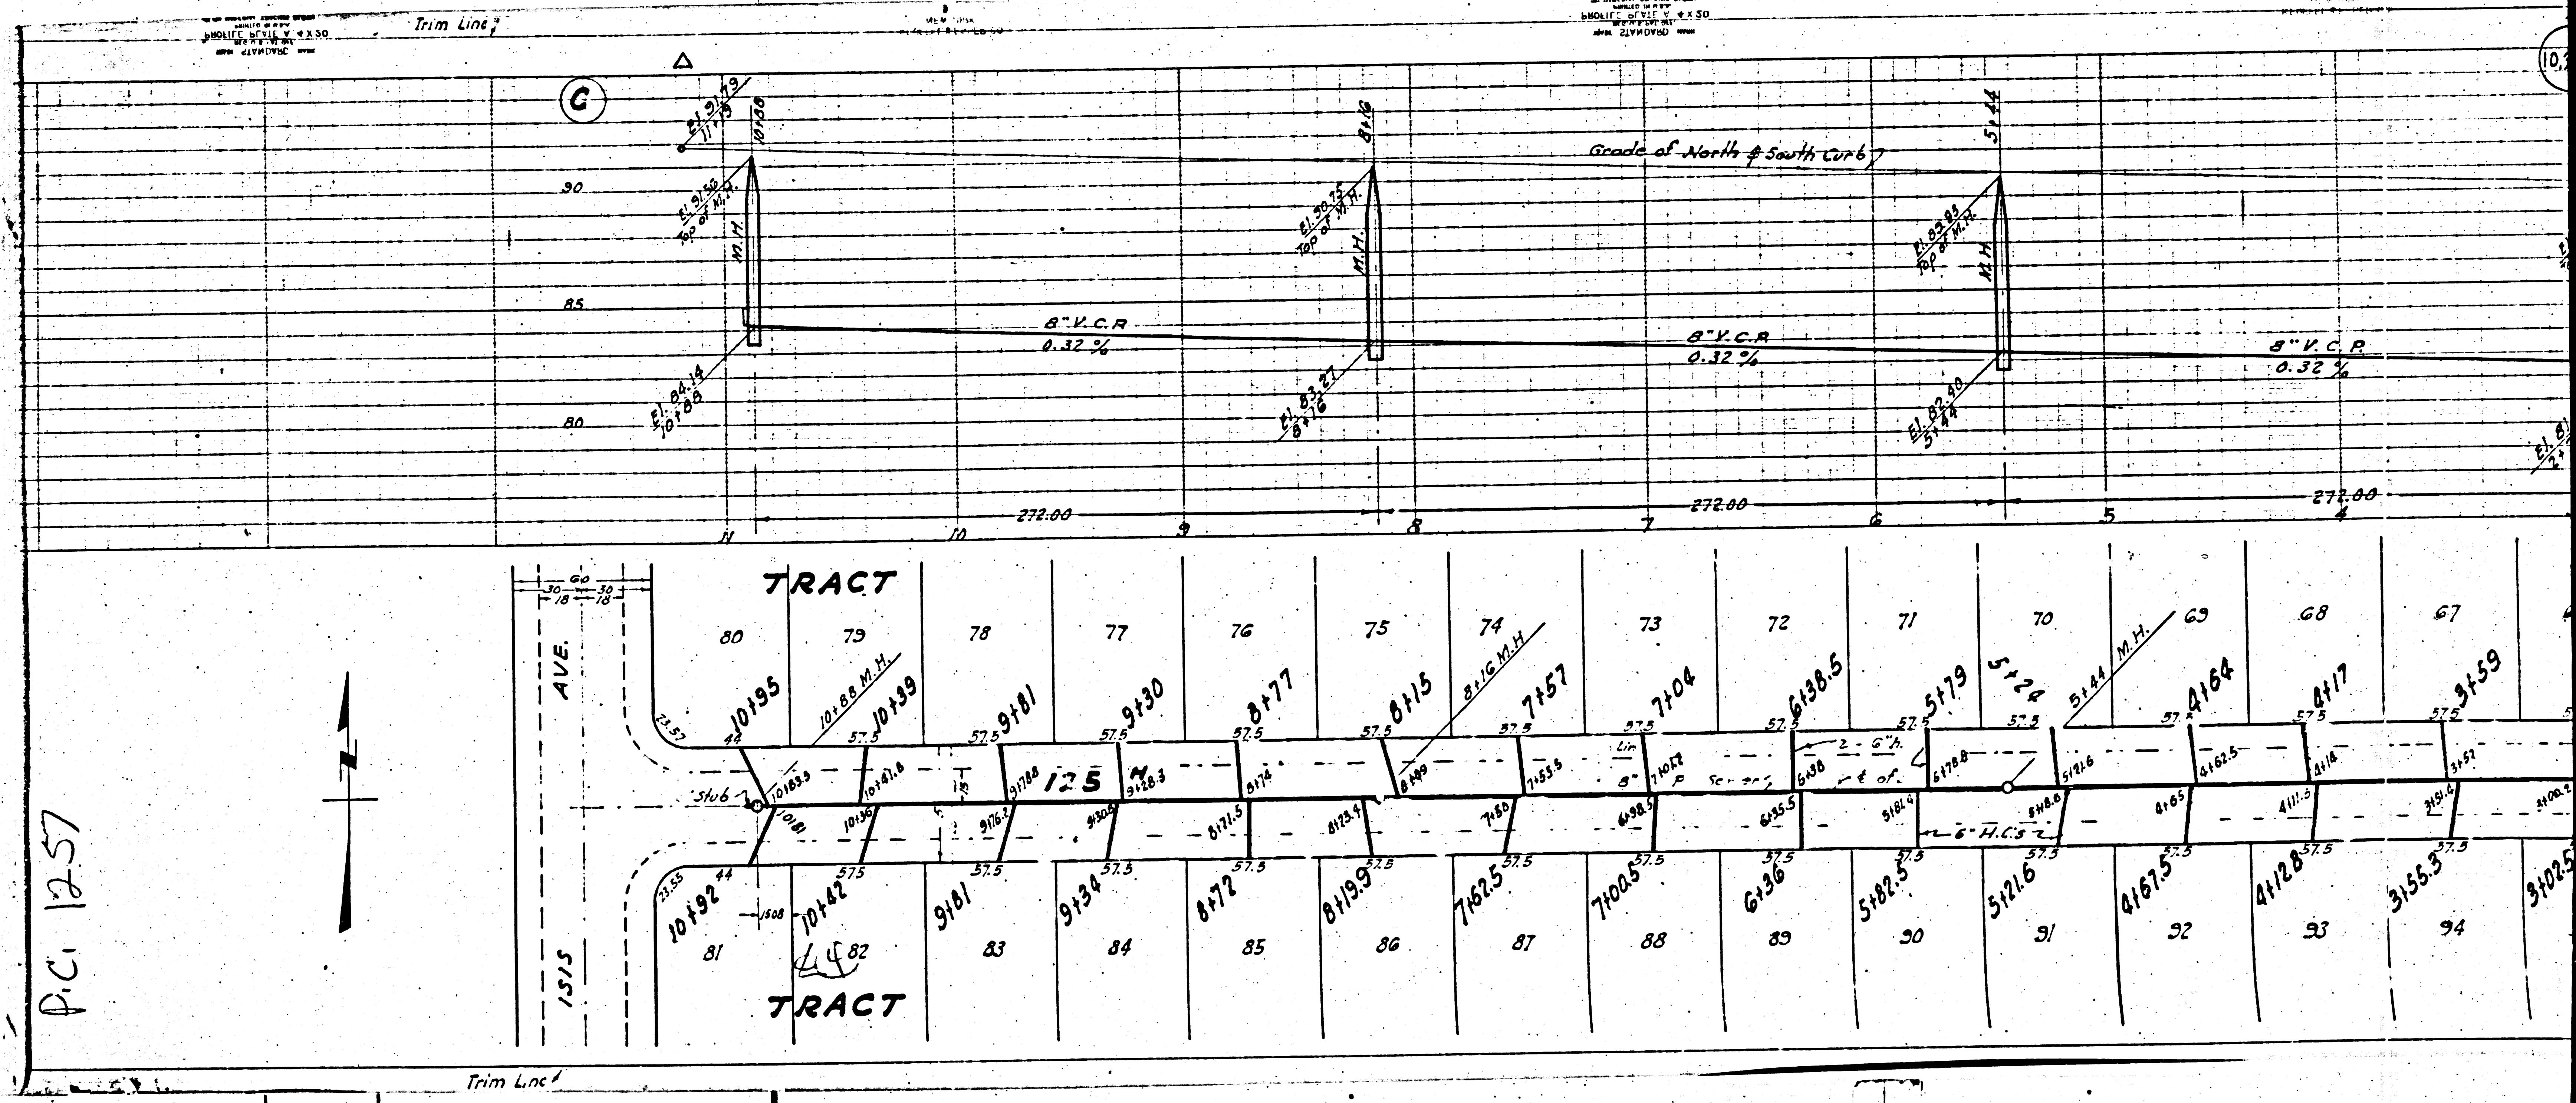 PROFILE PLATE A 4 X 20
STANDARD
Trim Line
PROFILE PLATE A 4 X 20
STANDARD
C
El. 91.79
11+19
10+88
8+16
5+44
Grade of North & South Curb
90
85
80
El. 91.56
Top of M.H.
M.H.
El. 90.75
Top of M.H.
M.H.
El. 89.93
Top of M.H.
M.H.
8" V.C.P.
0.32 %
8" V.C.P.
0.32 %
8" V.C.P.
0.32 %
El. 84.14
10+88
El. 83.27
8+16
El. 82.40
5+44
272.00
272.00
272.00
11 10 9 8 7 6 5 4
60
30 30
18 18
TRACT
80 79 78 77 76 75 74 73 72 71 70 69 68 67
AVE.
10+95 10+88 M.H. 10+39 9+81 9+30 8+77 8+15 8+16 M.H. 7+57 7+04 6+38.5 5+79 5+24 5+44 M.H. 4+64 4+17 3+59
23.57 44 57.5 57.5 57.5 57.5 57.5 57.5 57.5 57.5 57.5 57.5 57.5 57.5 57.5
Stub 10+83.9 10+41.6 9+78.8 125 TH 9+28.3 8+74 8+09 7+53.5 7+01.2 6+38 5+78.8 5+21.6 4+62.5 4+14 3+57
2 - 6" h.
10+81 10+36 9+76.2 9+30.6 8+71.5 8+23.4 7+60 6+98.5 6+35.5 5+81.4 5+18.8 4+65 4+11.5 3+51.4 3+00.2
6" H.C.s
23.55 44 57.5 57.5 57.5 57.5 57.5 57.5 57.5 57.5 57.5 57.5 57.5 57.5 57.5
10+92 15.08 10+42 9+81 9+34 8+72 8+19.9 7+62.5 7+00.5 6+36 5+82.5 5+21.6 4+67.5 4+12.8 3+55.3 3+02.5
81 82 83 84 85 86 87 88 89 90 91 92 93 94
ISIS
TRACT
P.C. 1257
Trim Line